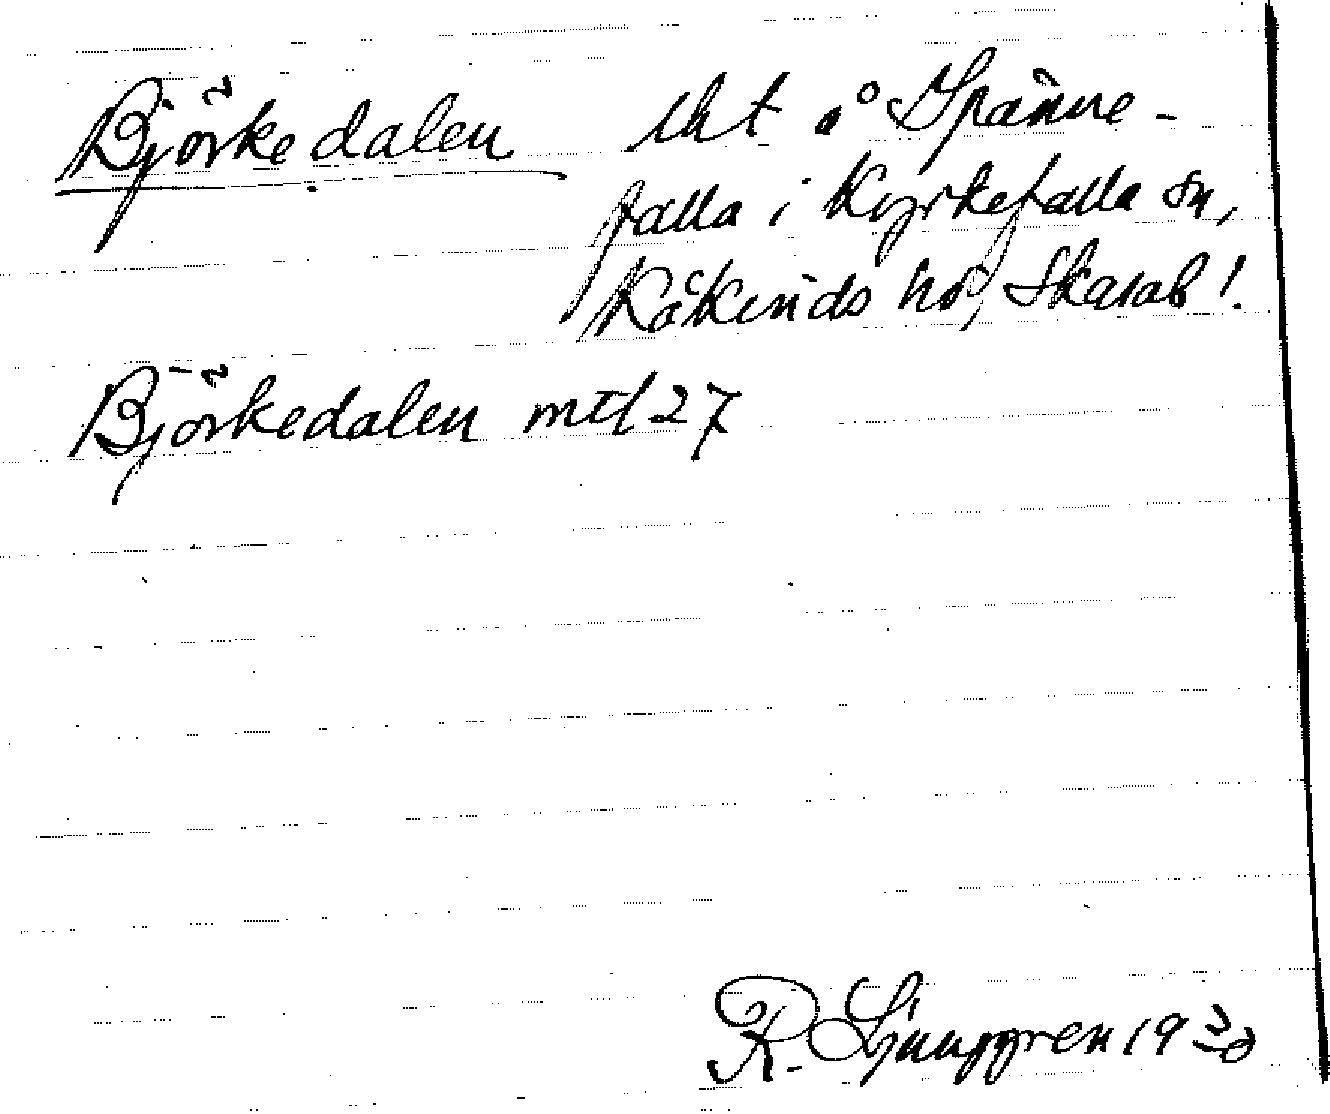 Björkedalen lht å Spänne-
falla i Kyrkefalla sn,
Kåkinds hd, Skarab!.
Björkedalen mtl 27
R. Ljunggren 1930